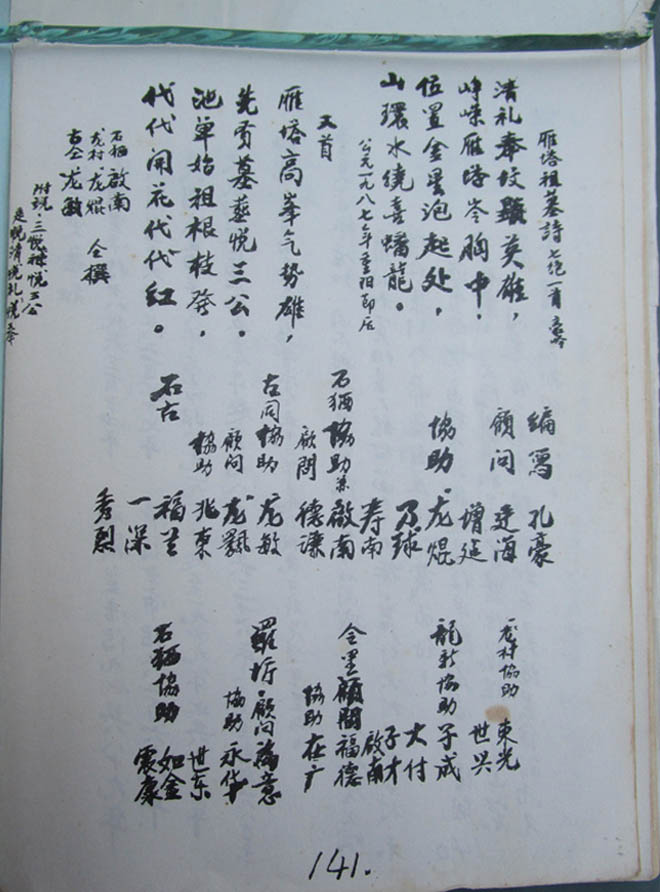 雁塔祖墓詩七绝一首
清礼奉坟顕英雄，
峥嵘雁塔岑胸中，
位置金星泡起处，
山環水繞喜蟠龍。
公元一九八七年重阳節后
又首
雁塔高峯气势雄，
先贡墓葬悦三公。
池单始祖根枝發，
代代開花代代红。
石獅 啟南
龙村 龙焜 仝撰
古仝 龙敏
附说，三悦禄悦三公
編寫 孔豪
顧问 建海
增廷
協助 龙焜
乃球
寿南
石獅協助 啟南
顧問 德谦
古同協助 龙敏
顧问 龙飘
協助 兆東
石古 福兰
一深
秀烈
龙村協助 東光
世兴
龍新協助 子成
大付
子才
啟南
金星顧問 福德
協助 在广
羅圻 顧问 為意
協助 永华
世东
石獅協助 如金
震康
141.